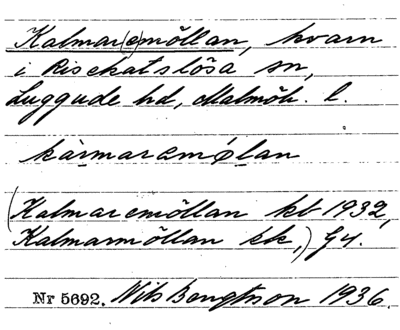 Kalmar(e)möllan, kvarn
i Risekatslösa sn,
Luggude hd, Malmöh. l.
kàrmaremǿlan
(Kalmaremöllan kb 1932,
Kalmarmöllan kk,) Gy.
Nr 5692. Nils Bengtsson 1936.